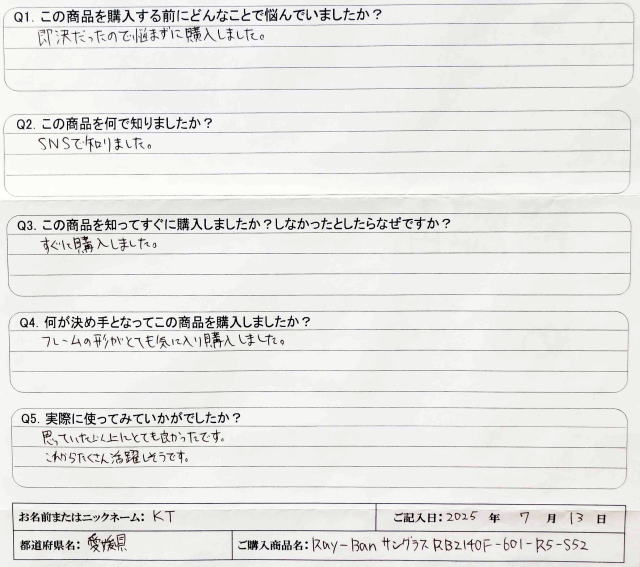 Q1. この商品を購入する前にどんなことで悩んでいましたか？
即決だったので悩まずに購入しました。
Q2. この商品を何で知りましたか？
SNSで知りました。
Q3. この商品を知ってすぐに購入しましたか？しなかったとしたらなぜですか？
すぐに購入しました。
Q4. 何が決め手となってこの商品を購入しましたか？
フレームの形がとても気に入り購入しました。
Q5. 実際に使ってみていかがでしたか？
思っていた以上にとても良かったです。
これからたくさん活躍しそうです。
お名前またはニックネーム： KT ご記入日：2025 年 7 月 13 日
都道府県名： 愛媛県 ご購入商品名：Ray-Ban サングラス RB2140F-601-R5-S52